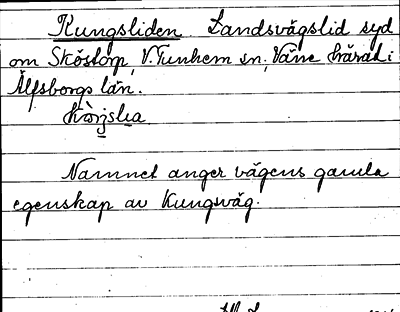 Kungsliden. Landsvägslid syd
om Sköstorp, V. Tunhem sn, Väne härad i
Älfsborgs län.
Namnet anger vägens gamla
egenskap av Kungsväg.